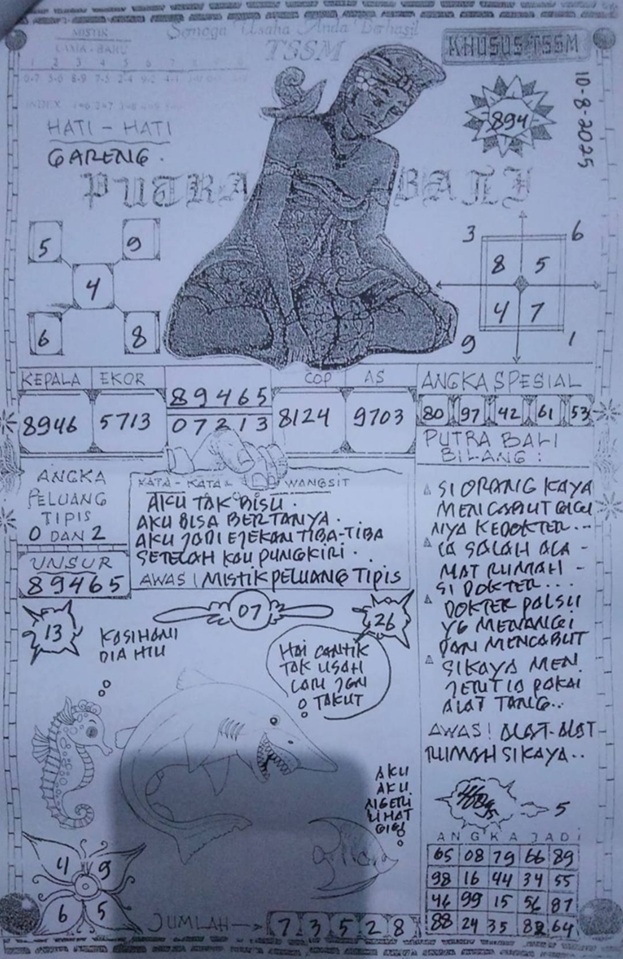 MISTIK
LAMA - BARU
Semoga Usaha Anda Berhasil
TSSM
KHUSUS TSSM
1 2 3 4 5 6 7
10-8-2025
894
HATI - HATI
GARENG.
PUTRA BALI
5 9
4
6 8
3 6
8 5
4 7
9 1
KEPALA EKOR
8946 5713
89465
07213
COP AS
8124 9703
ANGKA SPESIAL
80 97 42 61 53
ANGKA
PELUANG
TIPIS
0 DAN 2
UNSUR
89465
KATA - KATA WANGSIT
AKU TAK BISU.
AKU BISA BERTANYA.
AKU JADI EJEKAN TIBA-TIBA
SETELAH KAU PUNGKIRI.
AWAS! MISTIK PELUANG TIPIS
PUTRA BALI
BILANG:
SI ORANG KAYA
MENCABUT GIGI
NYA KEDOKTER...
IA SALAH ALA -
MAT RUMAH -
SI DOKTER....
DOKTER PALSU
YG MENANGI
DAN MENCABUT
SIKAYA MEN
JERIT IA PAKAI
ALAT TANG..
AWAS! ALAT-ALAT
RUMAH SIKAYA..
13
07
26
KASIHANI
DIA HIU
HAI CANTIK
TAK USAH
LARI JGN
TAKUT
AKU
AKU
NGERI
LIHAT
GIGI
5
4 9
6 5
JUMLAH 7 3 5 2 8
ANGKA JADI
65 08 79 66 89
98 16 44 34 55
46 99 15 56 87
88 24 35 82 64